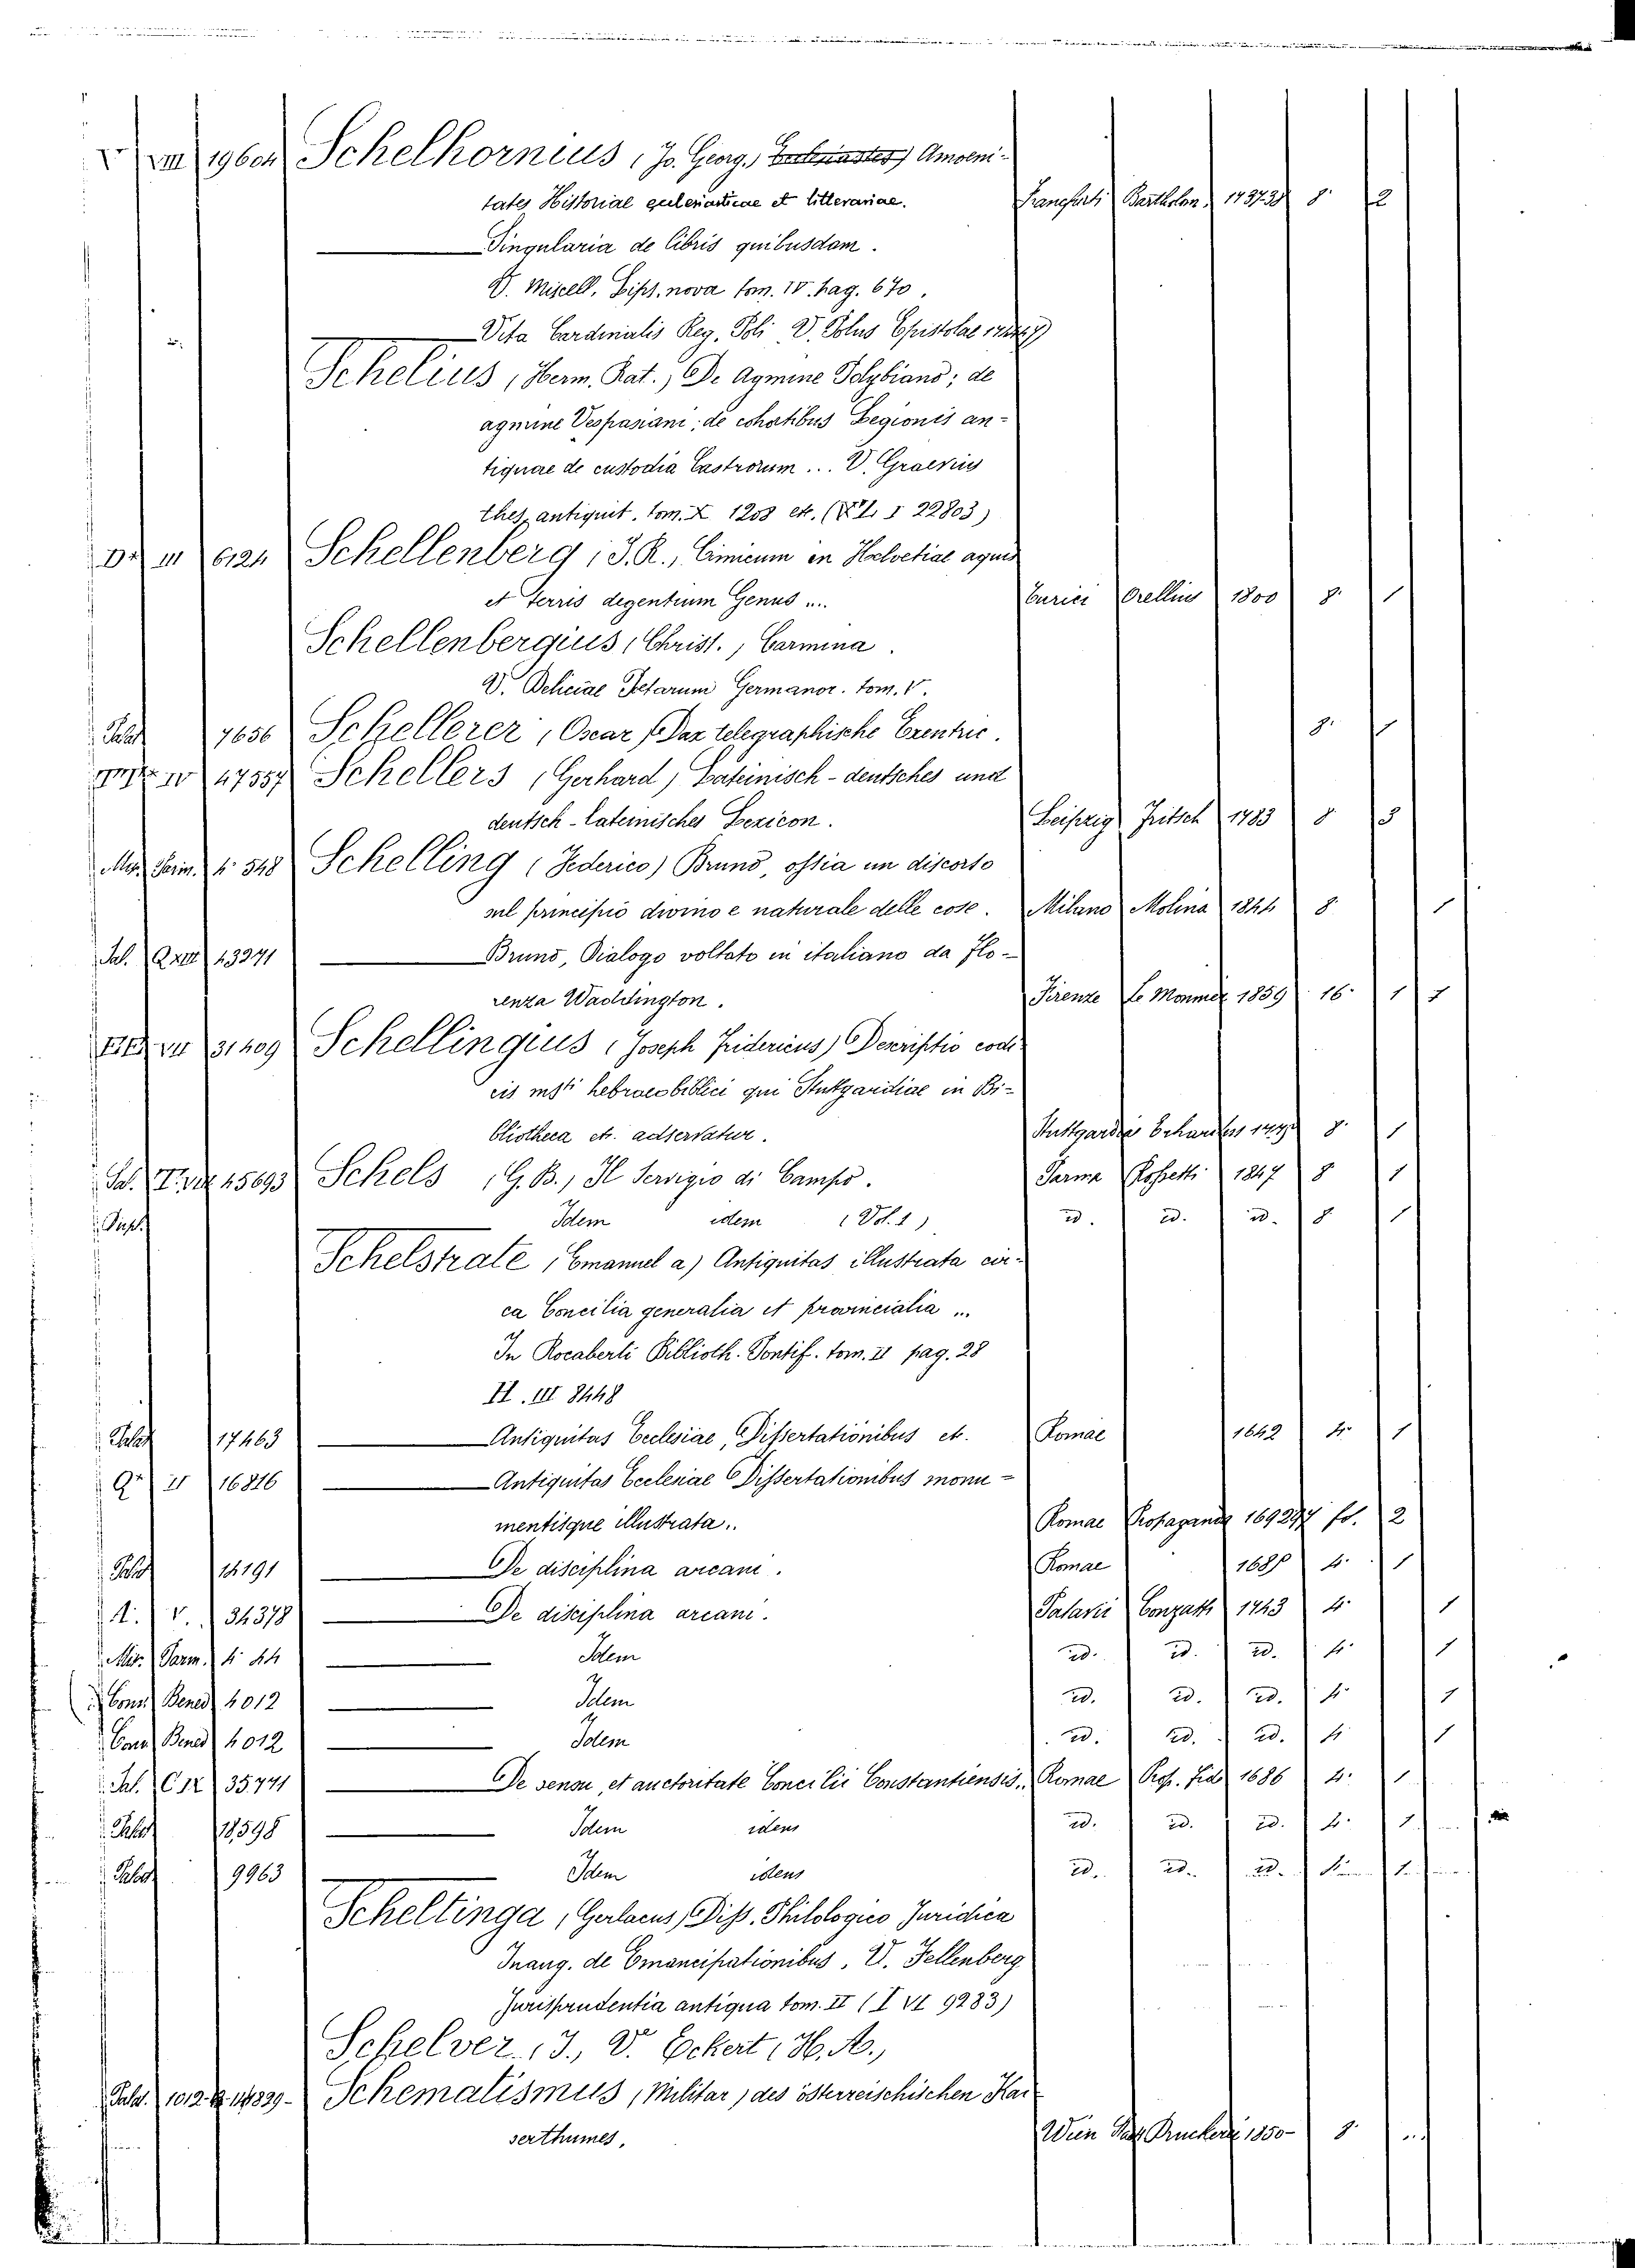 V VIII 19604 Schelhornius (Jo. Georg. Amoeni-
tates Historiae ecclesiasticae et litterariae. Francfurti Barthelom. 1737.38 8. 2
Singularia de libris quibusdam.
V. Miscell. Lips. nova tom. IV. pag. 670.
Vita Cardinalis Reg. Poli V. Polus Epistolae
Schelius (Herm. Rat.) De Agmine Polybiano; de
agmine Vespasiani; de cohortibus Legionis an-
tiquae de custodia Castrorum ... V. Graevius
thes. antiquit. tom. X 1203 etc. ( I 22803)
III 6124 Schellenberg (J. R.) Cimicum in Helvetiae aquis
et terris degentium Genus .... Turici Orellius 1800 8. 1
Schellenbergius (Christ.) Carmina.
V. Deliciae Poetarum Germanor. tom. V.
Palat 7656 Schellerer (Oscar) Das telegraphische Exentric. 8. 1
IV 47557 Schellers (Gerhard) Lateinisch-deutsches und
deutsch-lateinisches Lexicon. Leipzig Fritsch 1783 8 3
Mis. Parm. 4. 548 Schelling (Federico) Bruno, ossia un discorso
sul principio divino e naturale delle cose. Milano Molina 1844 8. 1
Sal. 43271 Bruno, Dialogo voltato in italiano da Flo-
renza Waddington. Firenze Le Monnier 1859 16. 1 1
VII 31409 Schellingius (Joseph Fridericus) Descriptio codi
cis msti hebraeobiblici qui Stuttgardiae in Bi-
bliotheca etc. adservatur. Stuttgardiae 8. 1
Sal. 45693 Schels (G. B.) Il Servigio di Campo. Parma Rossetti 1847 8 1
Dupl. Idem idem (Vol. 1) id. id. id. 8. 1
Schelstrate (Emanuel a) Antiquitas illustrata cir-
ca Concilia generalia et provincialia ...
In Rocaberti Biblioth. Pontif. tom. II pag. 28
H. III 8448
Palat 17463 Antiquitas Ecclesiae, Dissertationibus etc. Romae 1642 4. 1
Q. II 16816 Antiquitas Ecclesiae Dissertationibus monu-
mentisque illustrata.. Romae Propaganda 1692.97 fo. 2
Palat 14191 De disciplina arcani. Romae 1685 4. 1
A. V. 34378 De disciplina arcani. Patavii Conzatti 1743 4. 1
Mis. Parm. 4. 44 Idem id. id. id. 4. 1
Conv. Bened. 4012 Idem id. id. id. 4. 1
Conv. Bened. 4012 Idem id. id. id. 4 1
Sal. C IX 35771 De sensu et auctoritate Concilii Constantiensis.. Romae Prop. Fid. 1686 4. 1
Palat 18598 Idem idem id. id. id. 4. 1
Palat 9963 Idem idem id. id. id. 1
Scheltinga (Gerlacus) Diss. Philologico Juridica
Inaug. de Emancipationibus, V. Fellenberg
Jurisprudentia antiqua tom. II (I VI 9283)
Schelver (J.) V. Eckert (H. A.)
Palat. 1012. 14839- Schematismus (Militar) des österreischischen Kai
serthumes. Wien Druckerei 1850- 8.